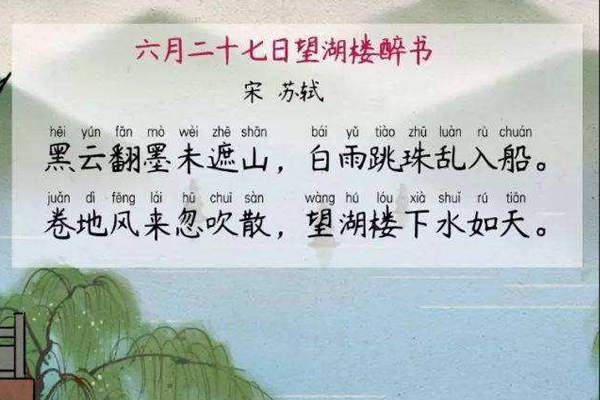 六月二十七日望湖楼醉书
宋 苏轼
hēi yún fān mò wèi zhē shān bái yǔ tiào zhū luàn rù chuán
黑云翻墨未遮山，白雨跳珠乱入船。
juǎn dì fēng lái hū chuī sàn wàng hú lóu xià shuǐ rú tiān
卷地风来忽吹散，望湖楼下水如天。